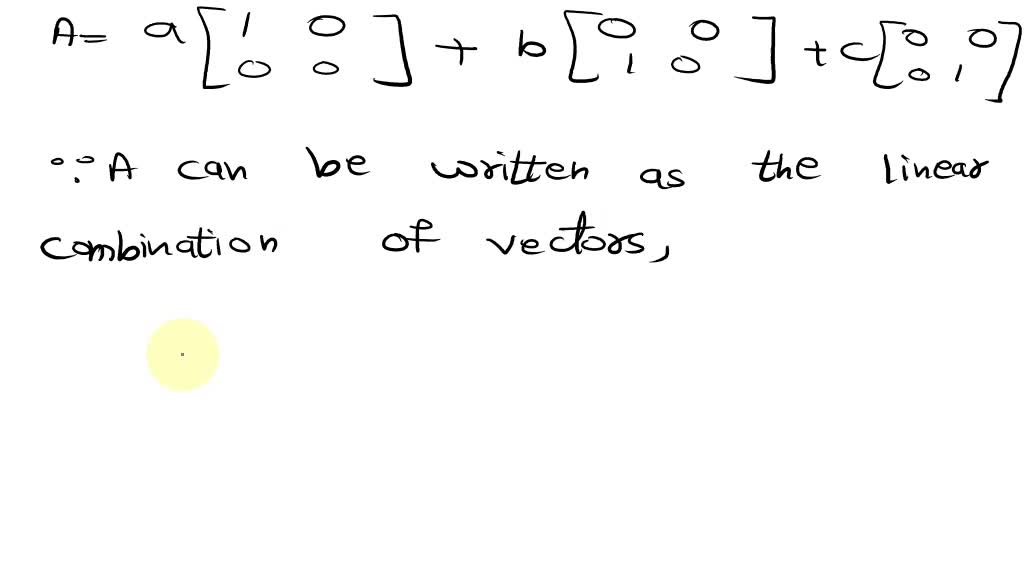 A= a [1 0 0 0] + b [0 0 1 0] + c [0 0 0 1]
∵ A can be written as the linear
combination of vectors,